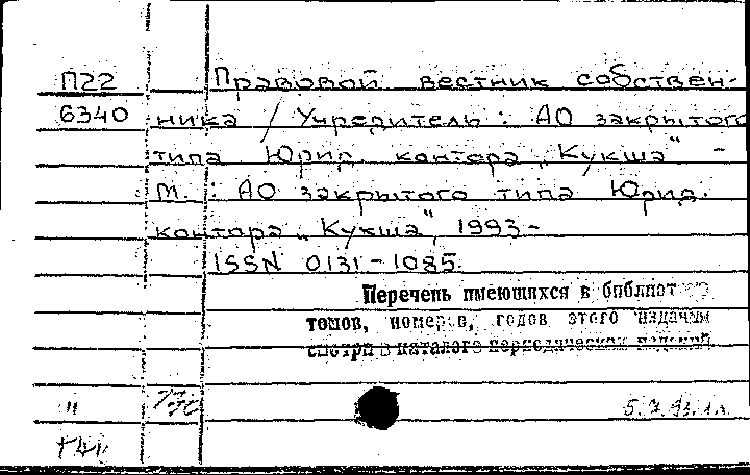 П22 Правовой вестник собствен-
6340 ника / Учредитель: АО закрытого
типа Юрид. контора „Кукша“ –
М.: АО закрытого типа Юрид.
контора „Кукша“, 1993–
ISSN 0131-1085.
Перечень имеющихся в библиот
томов, номеров, годов этого издания
смотри в каталоге периодических изданий